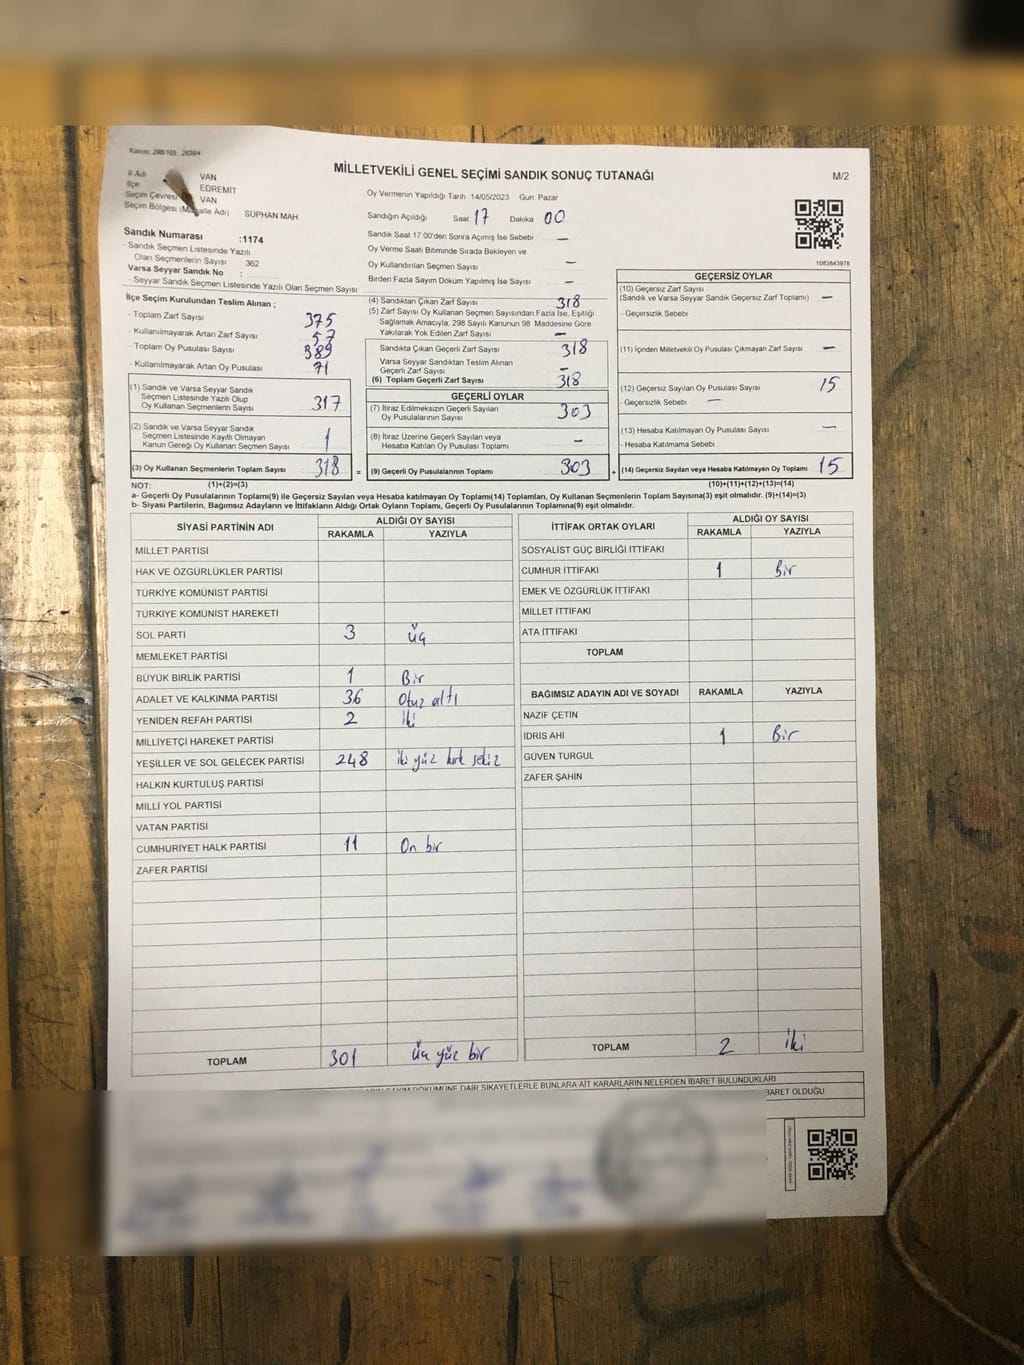 Kanun: 298/105, 2839/4
MİLLETVEKİLİ GENEL SEÇİMİ SANDIK SONUÇ TUTANAĞI
M/2
İl Adı VAN
İlçe EDREMİT
Seçim Çevresi VAN
Seçim Bölgesi (Mahalle Adı) SÜPHAN MAH
Sandık Numarası :1174
- Sandık Seçmen Listesinde Yazılı
Olan Seçmenlerin Sayısı 362
Varsa Seyyar Sandık No :
- Seyyar Sandık Seçmen Listesinde Yazılı Olan Seçmen Sayısı:
Oy Vermenin Yapıldığı Tarih 14/05/2023 Gün: Pazar
Sandığın Açıldığı Saat 17 Dakika 00
Sandık Saat 17:00'den Sonra Açılmış İse Sebebi —
Oy Verme Saati Bitiminde Sırada Bekleyen ve
Oy Kullandırılan Seçmen Sayısı —
Birden Fazla Sayım Döküm Yapılmış İse Sayısı —
1083843978
İlçe Seçim Kurulundan Teslim Alınan ;
- Toplam Zarf Sayısı 375
- Kullanılmayarak Artan Zarf Sayısı 57
- Toplam Oy Pusulası Sayısı 389
- Kullanılmayarak Artan Oy Pusulası 71
(1) Sandık ve Varsa Seyyar Sandık
Seçmen Listesinde Yazılı Olup
Oy Kullanan Seçmenlerin Sayısı 317
(2) Sandık ve Varsa Seyyar Sandık
Seçmen Listesinde Kayıtlı Olmayan
Kanun Gereği Oy Kullanan Seçmen Sayısı 1
(3) Oy Kullanan Seçmenlerin Toplam Sayısı 318
(4) Sandıktan Çıkan Zarf Sayısı 318
(5) Zarf Sayısı Oy Kullanan Seçmen Sayısından Fazla İse, Eşitliği
Sağlamak Amacıyla, 298 Sayılı Kanunun 98. Maddesine Göre
Yakılarak Yok Edilen Zarf Sayısı —
Sandıkta Çıkan Geçerli Zarf Sayısı 318
Varsa Seyyar Sandıktan Teslim Alınan
Geçerli Zarf Sayısı —
(6) Toplam Geçerli Zarf Sayısı 318
GEÇERLİ OYLAR
(7) İtiraz Edilmeksizin Geçerli Sayılan
Oy Pusulalarının Sayısı 303
(8) İtiraz Üzerine Geçerli Sayılan veya
Hesaba Katılan Oy Pusulası Toplamı —
= (9) Geçerli Oy Pusulalarının Toplamı 303
GEÇERSİZ OYLAR
(10) Geçersiz Zarf Sayısı
(Sandık ve Varsa Seyyar Sandık Geçersiz Zarf Toplamı) —
- Geçersizlik Sebebi
(11) İçinden Milletvekili Oy Pusulası Çıkmayan Zarf Sayısı —
(12) Geçersiz Sayılan Oy Pusulası Sayısı 15
- Geçersizlik Sebebi —
(13) Hesaba Katılmayan Oy Pusulası Sayısı —
- Hesaba Katılmama Sebebi
+ (14) Geçersiz Sayılan veya Hesaba Katılmayan Oy Toplamı 15
NOT: (1)+(2)=(3) (10)+(11)+(12)+(13)=(14)
a- Geçerli Oy Pusulalarının Toplamı(9) ile Geçersiz Sayılan veya Hesaba katılmayan Oy Toplamı(14) Toplamları, Oy Kullanan Seçmenlerin Toplam Sayısına(3) eşit olmalıdır. (9)+(14)=(3)
b- Siyasi Partilerin, Bağımsız Adayların ve İttifakların Aldığı Ortak Oyların Toplamı, Geçerli Oy Pusulalarının Toplamına(9) eşit olmalıdır.
SİYASİ PARTİNİN ADI ALDIĞI OY SAYISI
RAKAMLA YAZIYLA
MİLLET PARTİSİ
HAK VE ÖZGÜRLÜKLER PARTİSİ
TÜRKİYE KOMÜNİST PARTİSİ
TÜRKİYE KOMÜNİST HAREKETİ
SOL PARTİ 3 Üç
MEMLEKET PARTİSİ
BÜYÜK BİRLİK PARTİSİ 1 Bir
ADALET VE KALKINMA PARTİSİ 36 Otuz altı
YENİDEN REFAH PARTİSİ 2 İki
MİLLİYETÇİ HAREKET PARTİSİ
YEŞİLLER VE SOL GELECEK PARTİSİ 248 iki yüz kırk sekiz
HALKIN KURTULUŞ PARTİSİ
MİLLİ YOL PARTİSİ
VATAN PARTİSİ
CUMHURİYET HALK PARTİSİ 11 On bir
ZAFER PARTİSİ
TOPLAM 301 Üç yüz bir
İTTİFAK ORTAK OYLARI ALDIĞI OY SAYISI
RAKAMLA YAZIYLA
SOSYALİST GÜÇ BİRLİĞİ İTTİFAKI
CUMHUR İTTİFAKI 1 Bir
EMEK VE ÖZGÜRLÜK İTTİFAKI
MİLLET İTTİFAKI
ATA İTTİFAKI
TOPLAM
BAĞIMSIZ ADAYIN ADI VE SOYADI RAKAMLA YAZIYLA
NAZİF ÇETİN
İDRİS AHİ 1 Bir
GÜVEN TURGUL
ZAFER ŞAHİN
TOPLAM 2 İki
DÖKÜMÜNE DAİR ŞİKAYETLERLE BUNLARA AİT KARARLARIN NELERDEN İBARET BULUNDUKLARI
İBARET OLDUĞU